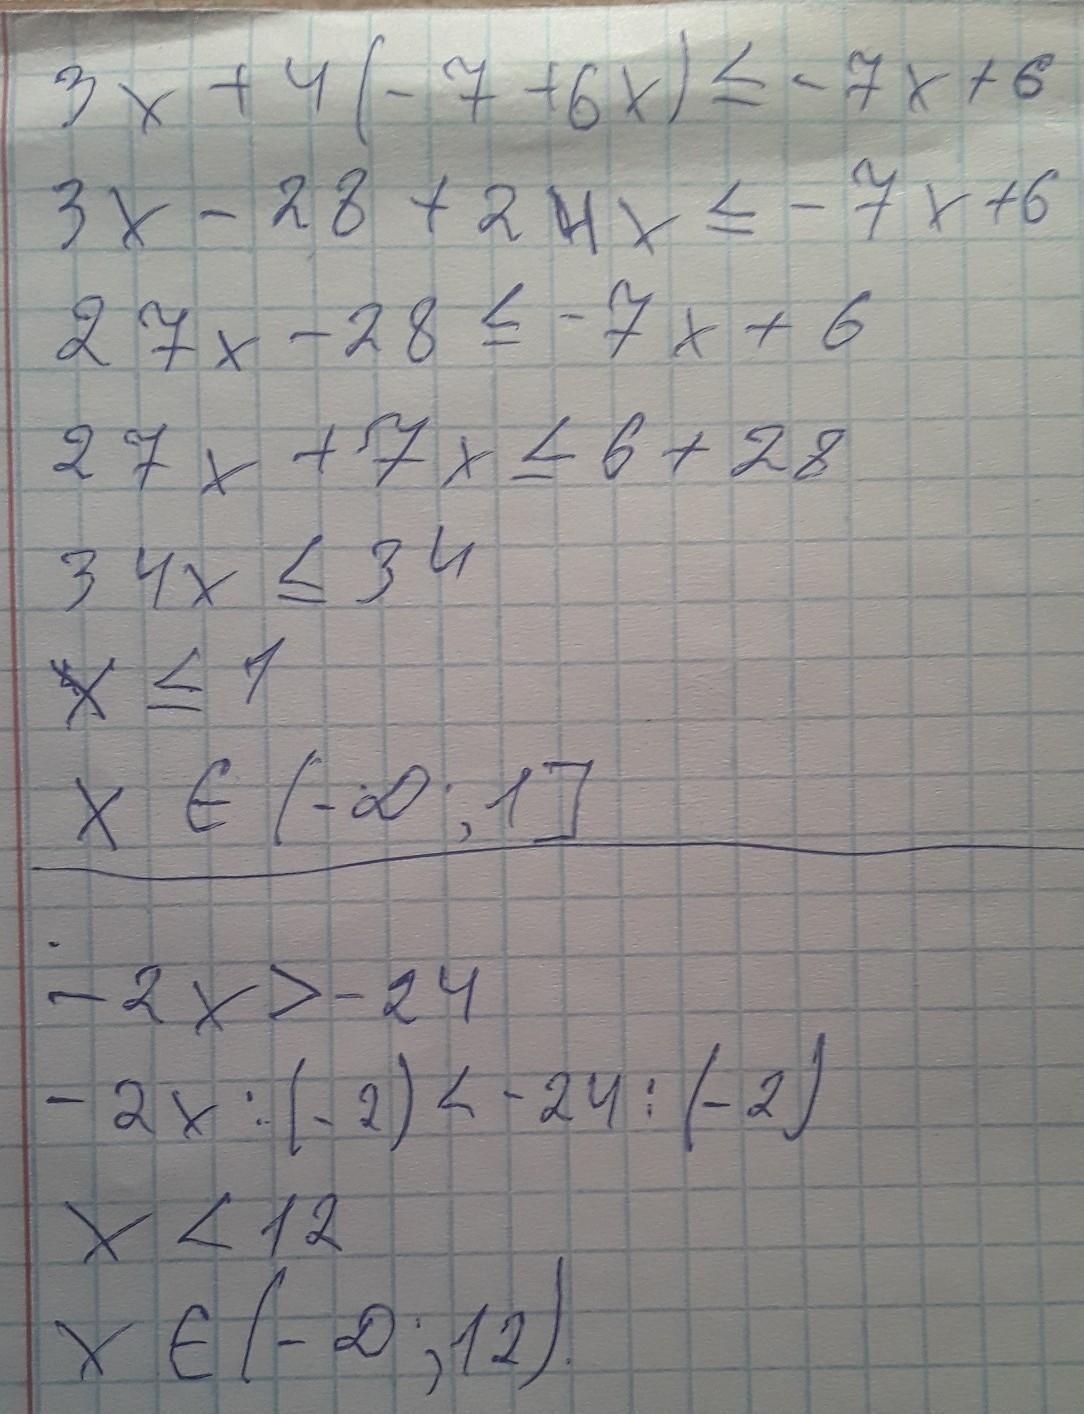 3x + 4(-7 + 6x) ≤ -7x + 6
3x - 28 + 24x ≤ -7x + 6
27x - 28 ≤ -7x + 6
27x + 7x ≤ 6 + 28
34x ≤ 34
x ≤ 1
x ∈ (-∞; 1]
-2x > -24
-2x : (-2) < -24 : (-2)
x < 12
x ∈ (-∞; 12).